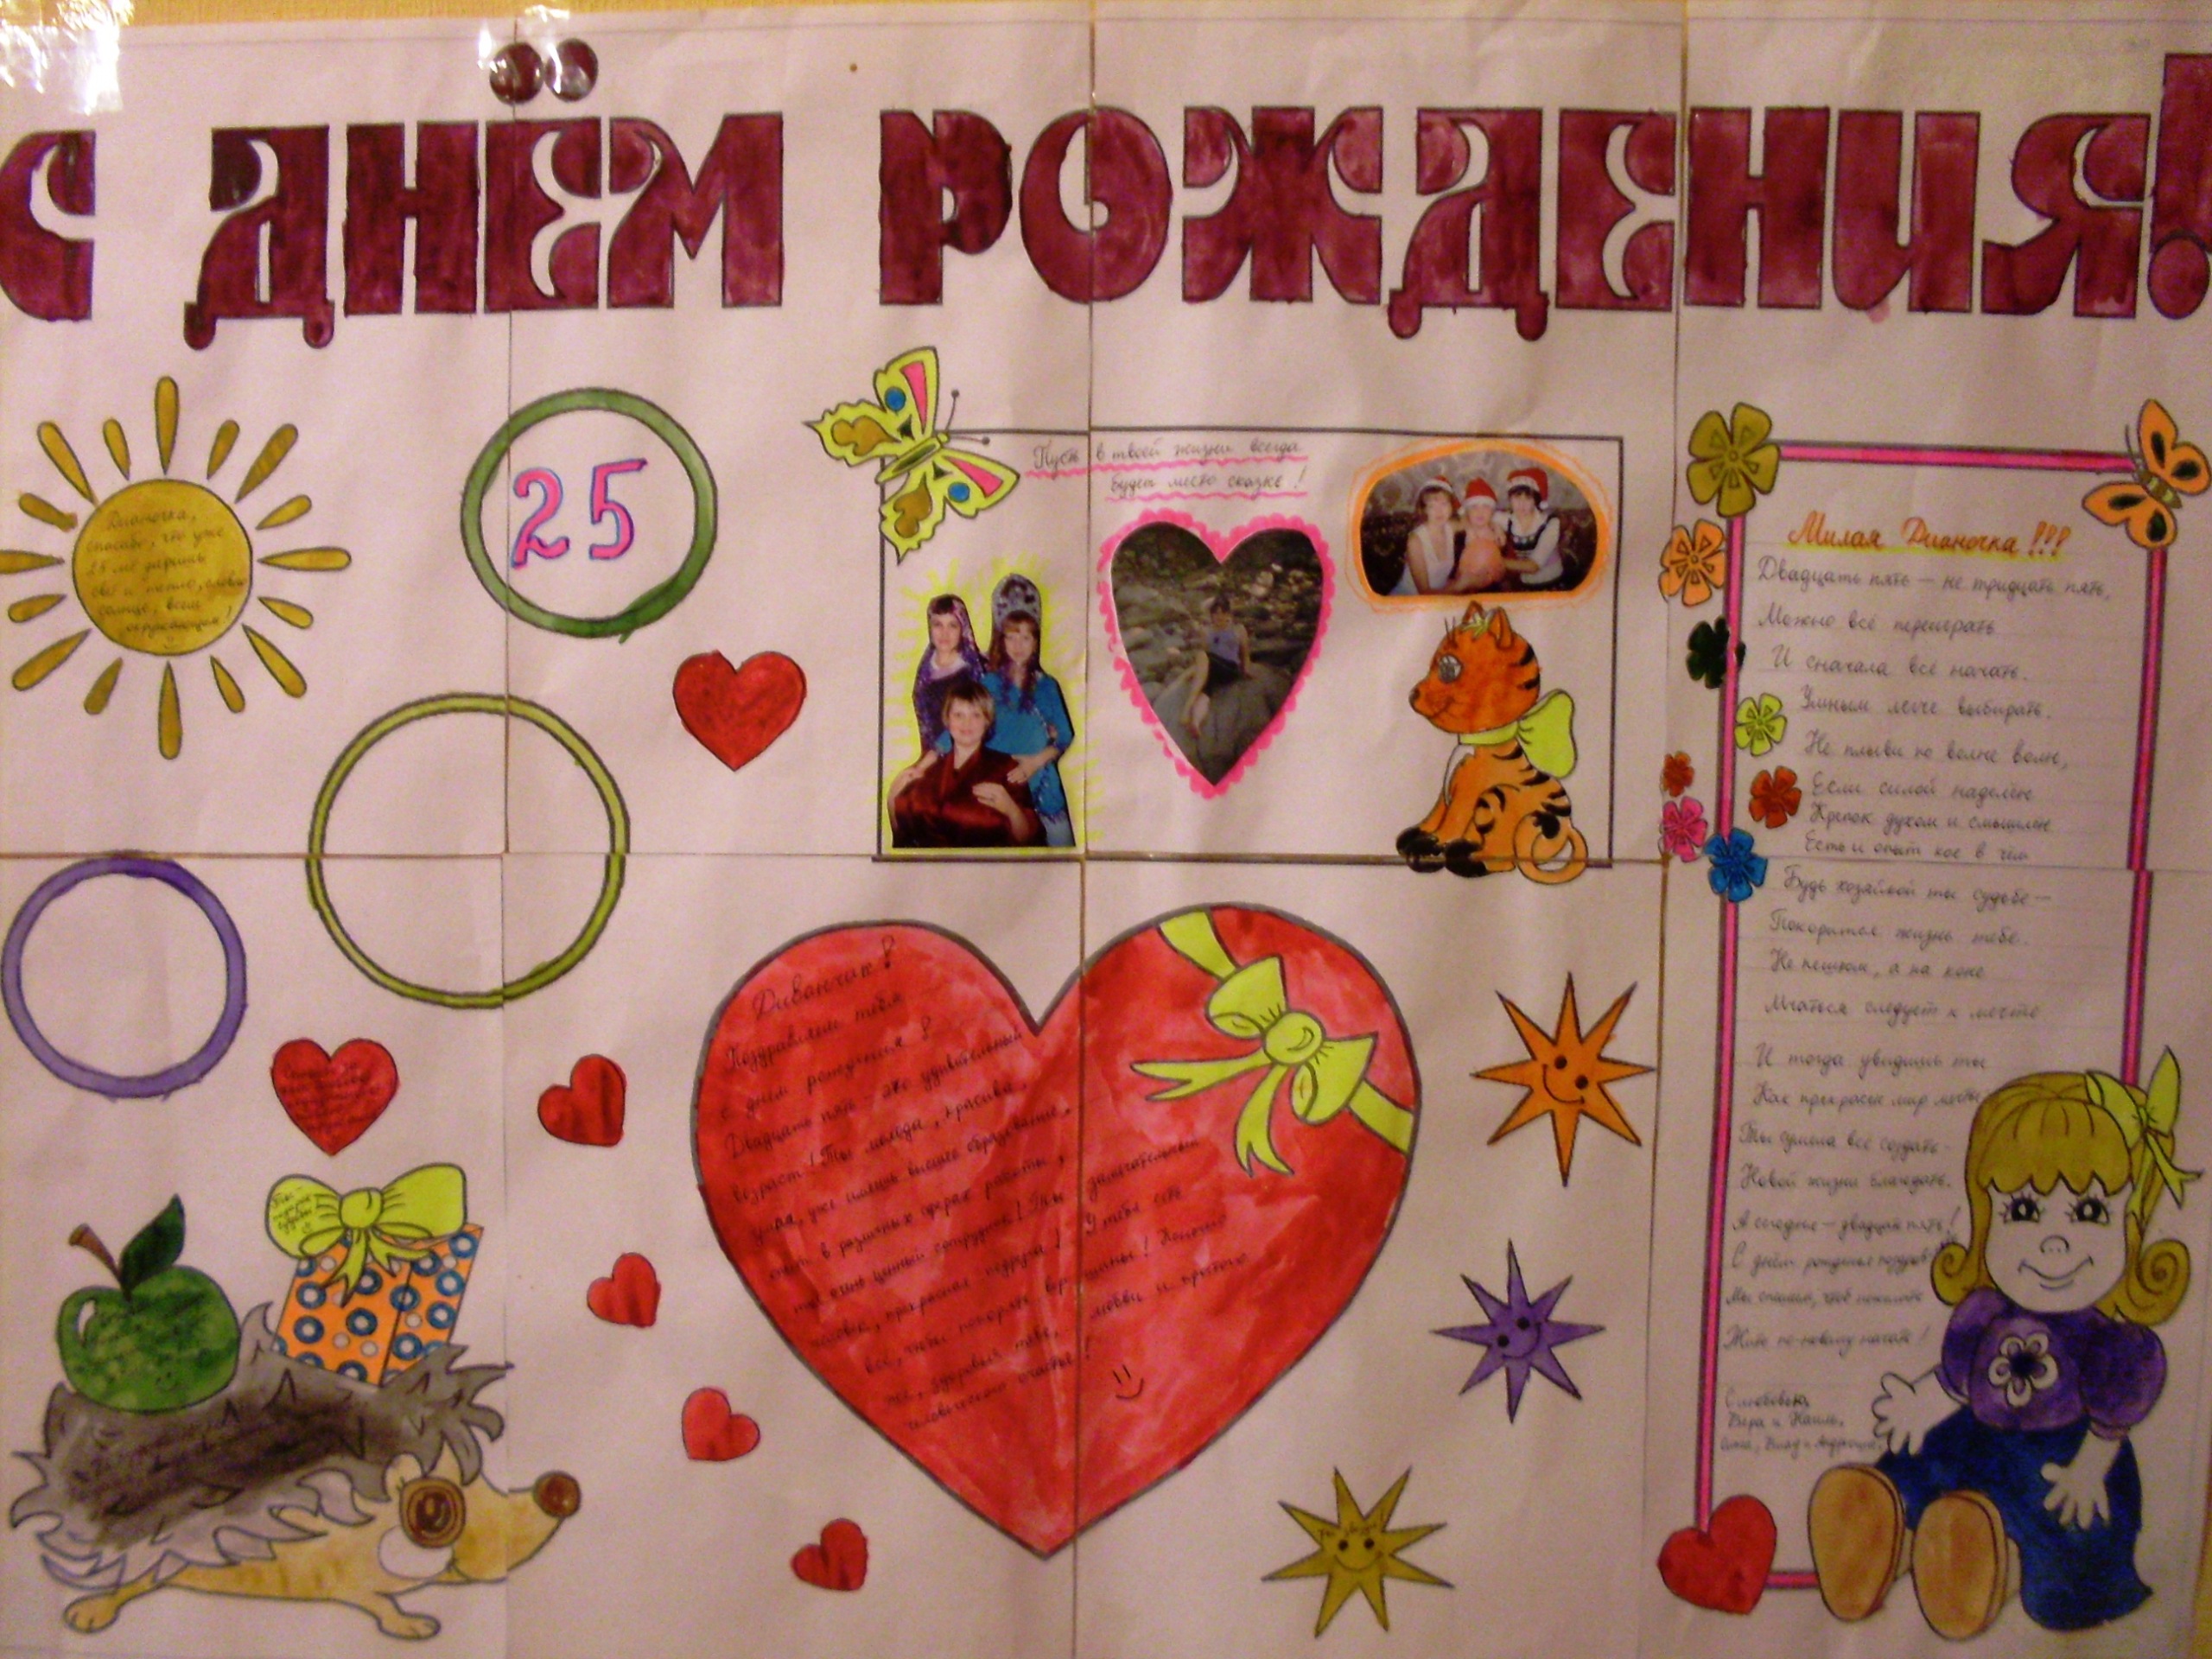 С ДНЁМ РОЖДЕНИЯ!
Дианочка,
спасибо, что уже
25 лет даришь
свет и тепло, словно
солнце, всем
окружающим!
25
Пусть в твоей жизни всегда
будет место сказке!
Милая Дианочка!!!
Двадцать пять — не тридцать пять,
Можно всё переиграть
И сначала всё начать.
Умным легче выбирать.
Не плыви по волне волн,
Если силой наделён
Крепок духом и смышлён
Есть и опыт кое в чём
Будь хозяйкой ты судьбе —
Покорится жизнь тебе.
Не пешком, а на коне
Мчаться следует к мечте
И тогда увидишь ты
Как прекрасен мир мечты
Ты сумела всё создать -
Новой жизни благодать.
А сегодня — двадцать пять!
С днём рожденья
Мы спешим, чтоб
Жить по-новому начать!
С любовью,
Вера и Наиль,
Влад и
Диванчик!
Поздравляем тебя
с днём рождения!
Двадцать пять - это удивительный
возраст! Ты молода, красива,
умна, уже имеешь высшее образование,
опыт в различных сферах работы,
ты очень ценный сотрудник! Ты замечательный
человек, прекрасная подруга! У тебя есть
всё, чтобы покорять вершины! Конечно
же, здоровья тебе, любви и простого
человеческого счастья!